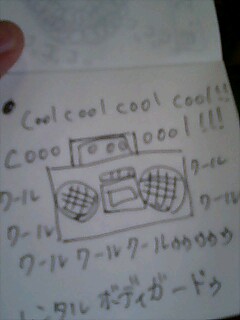 Cool cool cool cool!!
Cooo oool!!!
ワール ワール
ワール ワール
ワール ワール ワールゥゥゥゥゥ
レンタル ボディガードゥ